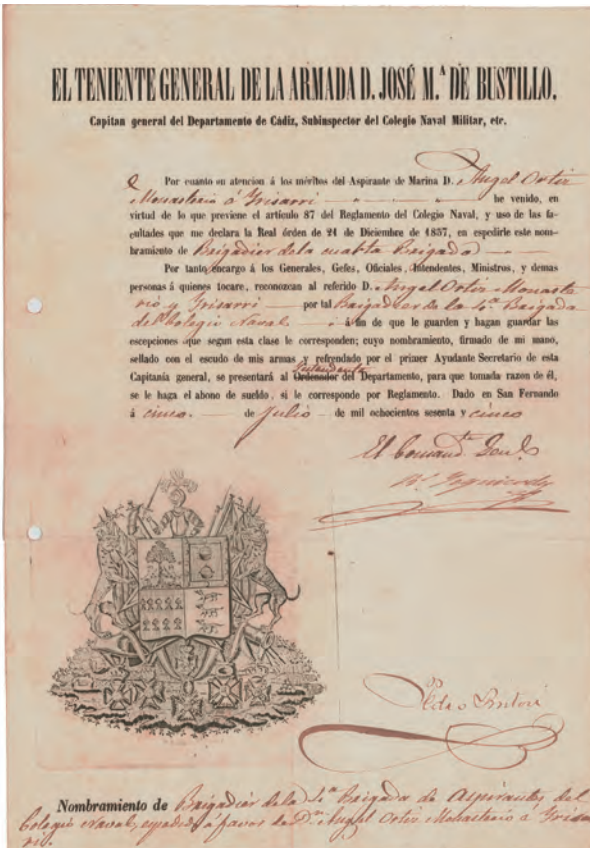 EL TENIENTE GENERAL DE LA ARMADA D. JOSÉ M.ª DE BUSTILLO.
Capitan general del Departamento de Cádiz, Subinspector del Colegio Naval Militar, etc.
Por cuanto en atencion á los méritos del Aspirante de Marina D. Angel Ortiz
Monasterio é Yrisarri he venido, en
virtud de lo que previene el artículo 87 del Reglamento del Colegio Naval, y uso de las fa-
cultades que me declara la Real órden de 21 de Diciembre de 1857, en espedirle este nom-
bramiento de Brigadier de la cuarta Brigada
Por tanto encargo á los Generales, Gefes, Oficiales, Intendentes, Ministros, y demas
personas á quienes tocare, reconozcan al referido D. Angel Ortiz Monaste
rio y Yrisarri por tal Brigadier de la 4.ª Brigada
del Colegio Naval á fin de que le guarden y hagan guardar las
escepciones que segun esta clase le corresponden; cuyo nombramiento, firmado de mi mano,
sellado con el escudo de mis armas y refrendado por el primer Ayudante Secretario de esta
Intendente
Capitanía general, se presentará al Ordenador del Departamento, para que tomada razon de él,
se le haga el abono de sueldo, si le corresponde por Reglamento. Dado en San Fernando
á cinco de Julio de mil ochocientos sesenta y cinco
El Comand.te Gen.l
Yzquierdo
Pedro
Nombramiento de Brigadier de la 4.ª Brigada de Aspirantes del
Colegio Naval, espedido á favor de D.n Angel Ortiz Monasterio é Yrisar
ri.